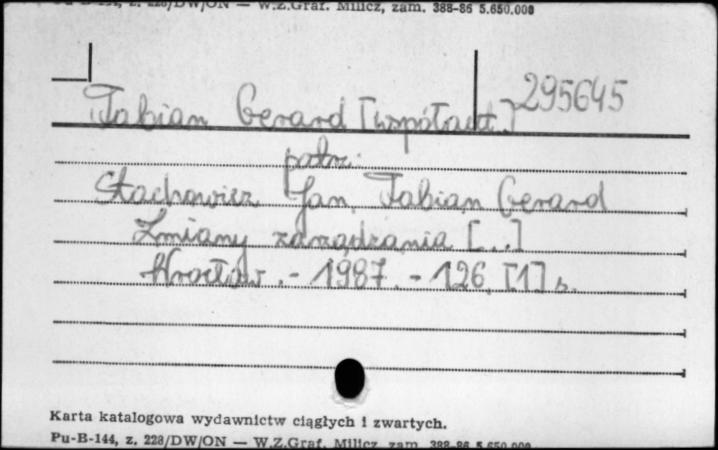 Pu-B-144, z. 228/DW/ON — W.Z.Graf. Milicz, zam. 388-86 5.650.000
295645
Fabian Gerard [współaut.]
patrz:
Stachowicz Jan, Fabian Gerard
Zmiany zarządzania [...]
Wrocław. - 1987. - 126, [1] s.
Karta katalogowa wydawnictw ciągłych i zwartych.
Pu-B-144, z. 228/DW/ON — W.Z.Graf. Milicz, zam. 388-86 5.650.000